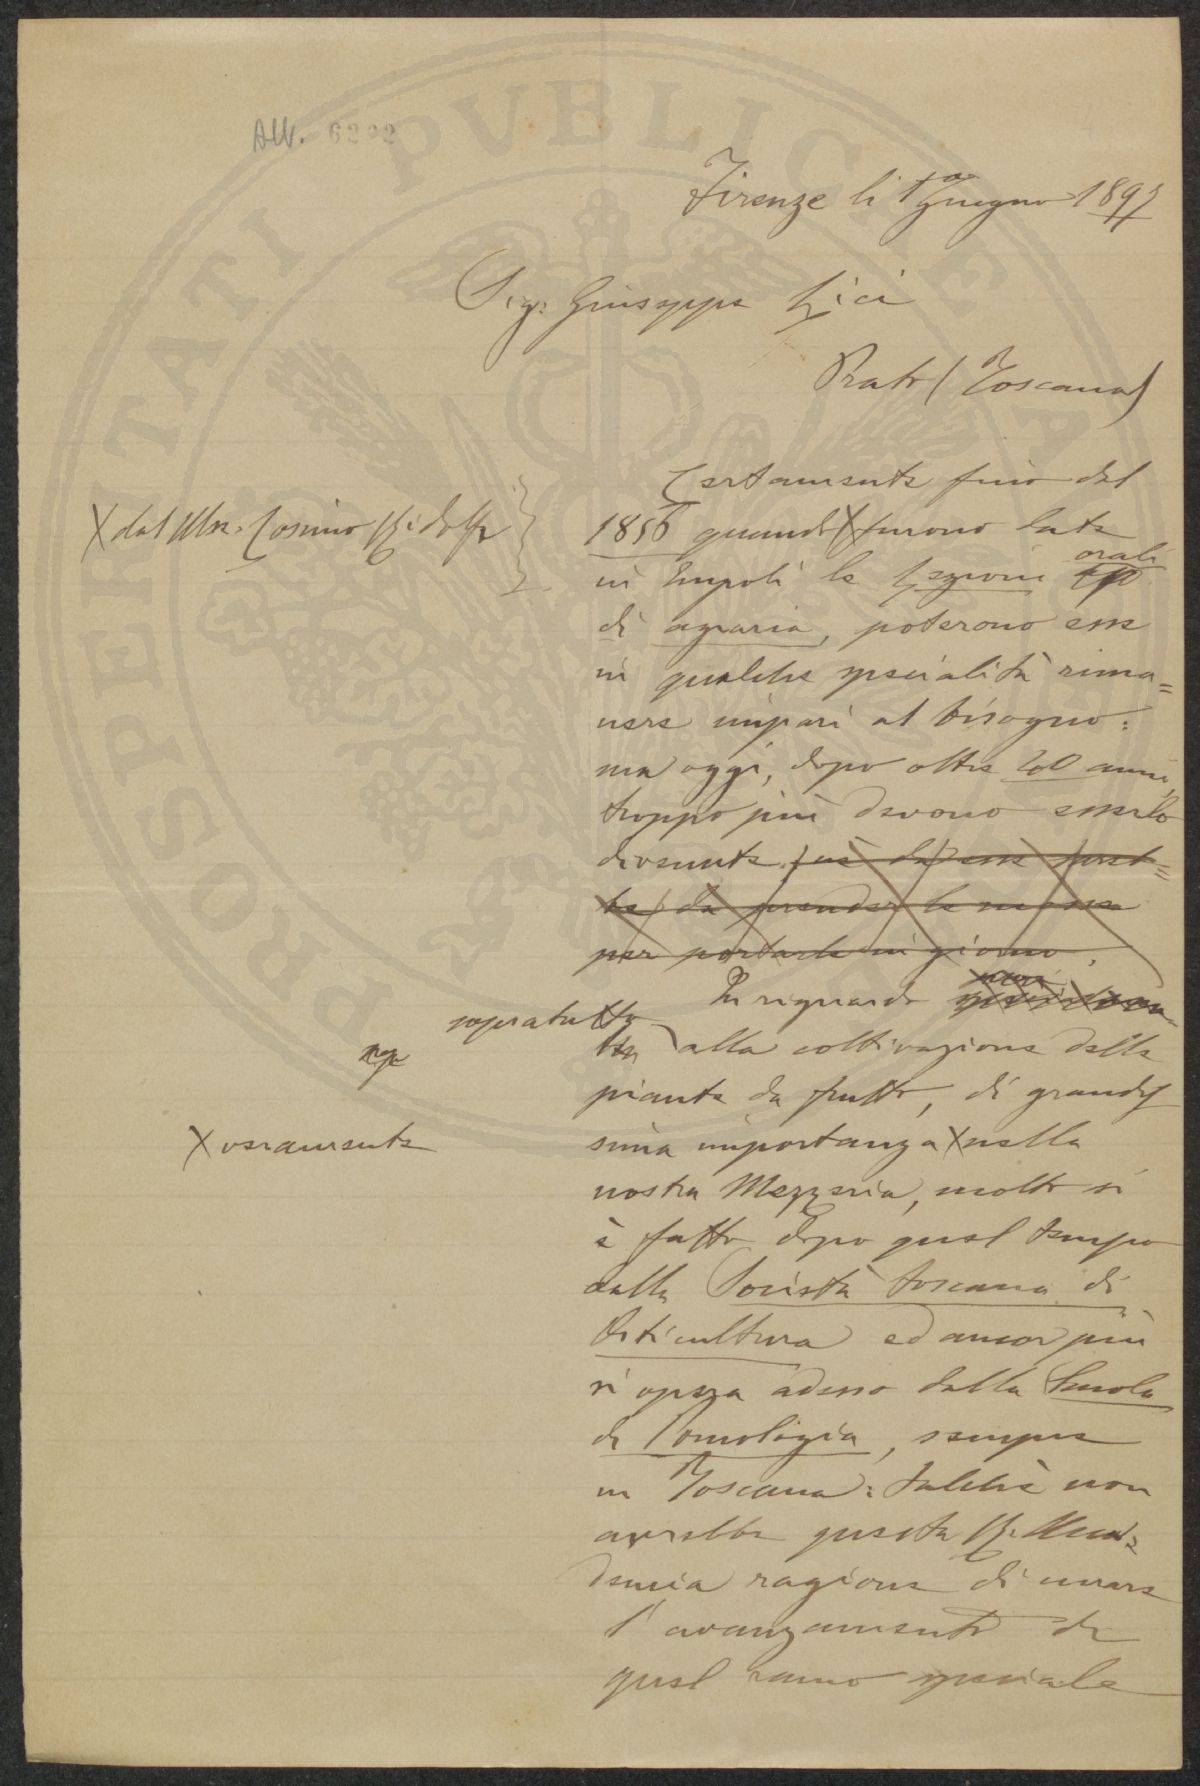 AW. 6222
PROSPERITATI PUBLICAE A
Firenze li 1° Giugno 1897
Sig. Giuseppe Lici
Prato (Toscana)
Certamente fino dal
X dal Mse. Cosimo Ridolfi
1856 quando X furono fatte
orali
in Empoli le Lezioni
di agraria, poterono esse
in qualche specialità rima=
nere impari al bisogno:
ma oggi, dopo oltre 40 anni,
troppo più devono esserlo
divenute
per portarle in giorno.
In riguardo
sopratutto
alla coltivazione delle
piante da frutto, di grandis
X veramente
sima importanza X nella
nostra Mezzeria, molto si
è fatto dopo quel tempo
dalla Società toscana di
Orticultura ed ancor più
si opera adesso dalla Scuola
di Pomologia, sempre
in Toscana: talchè non
avrebbe questa R. Acca=
demia ragione di curare
l'avanzamento di
quel ramo speciale